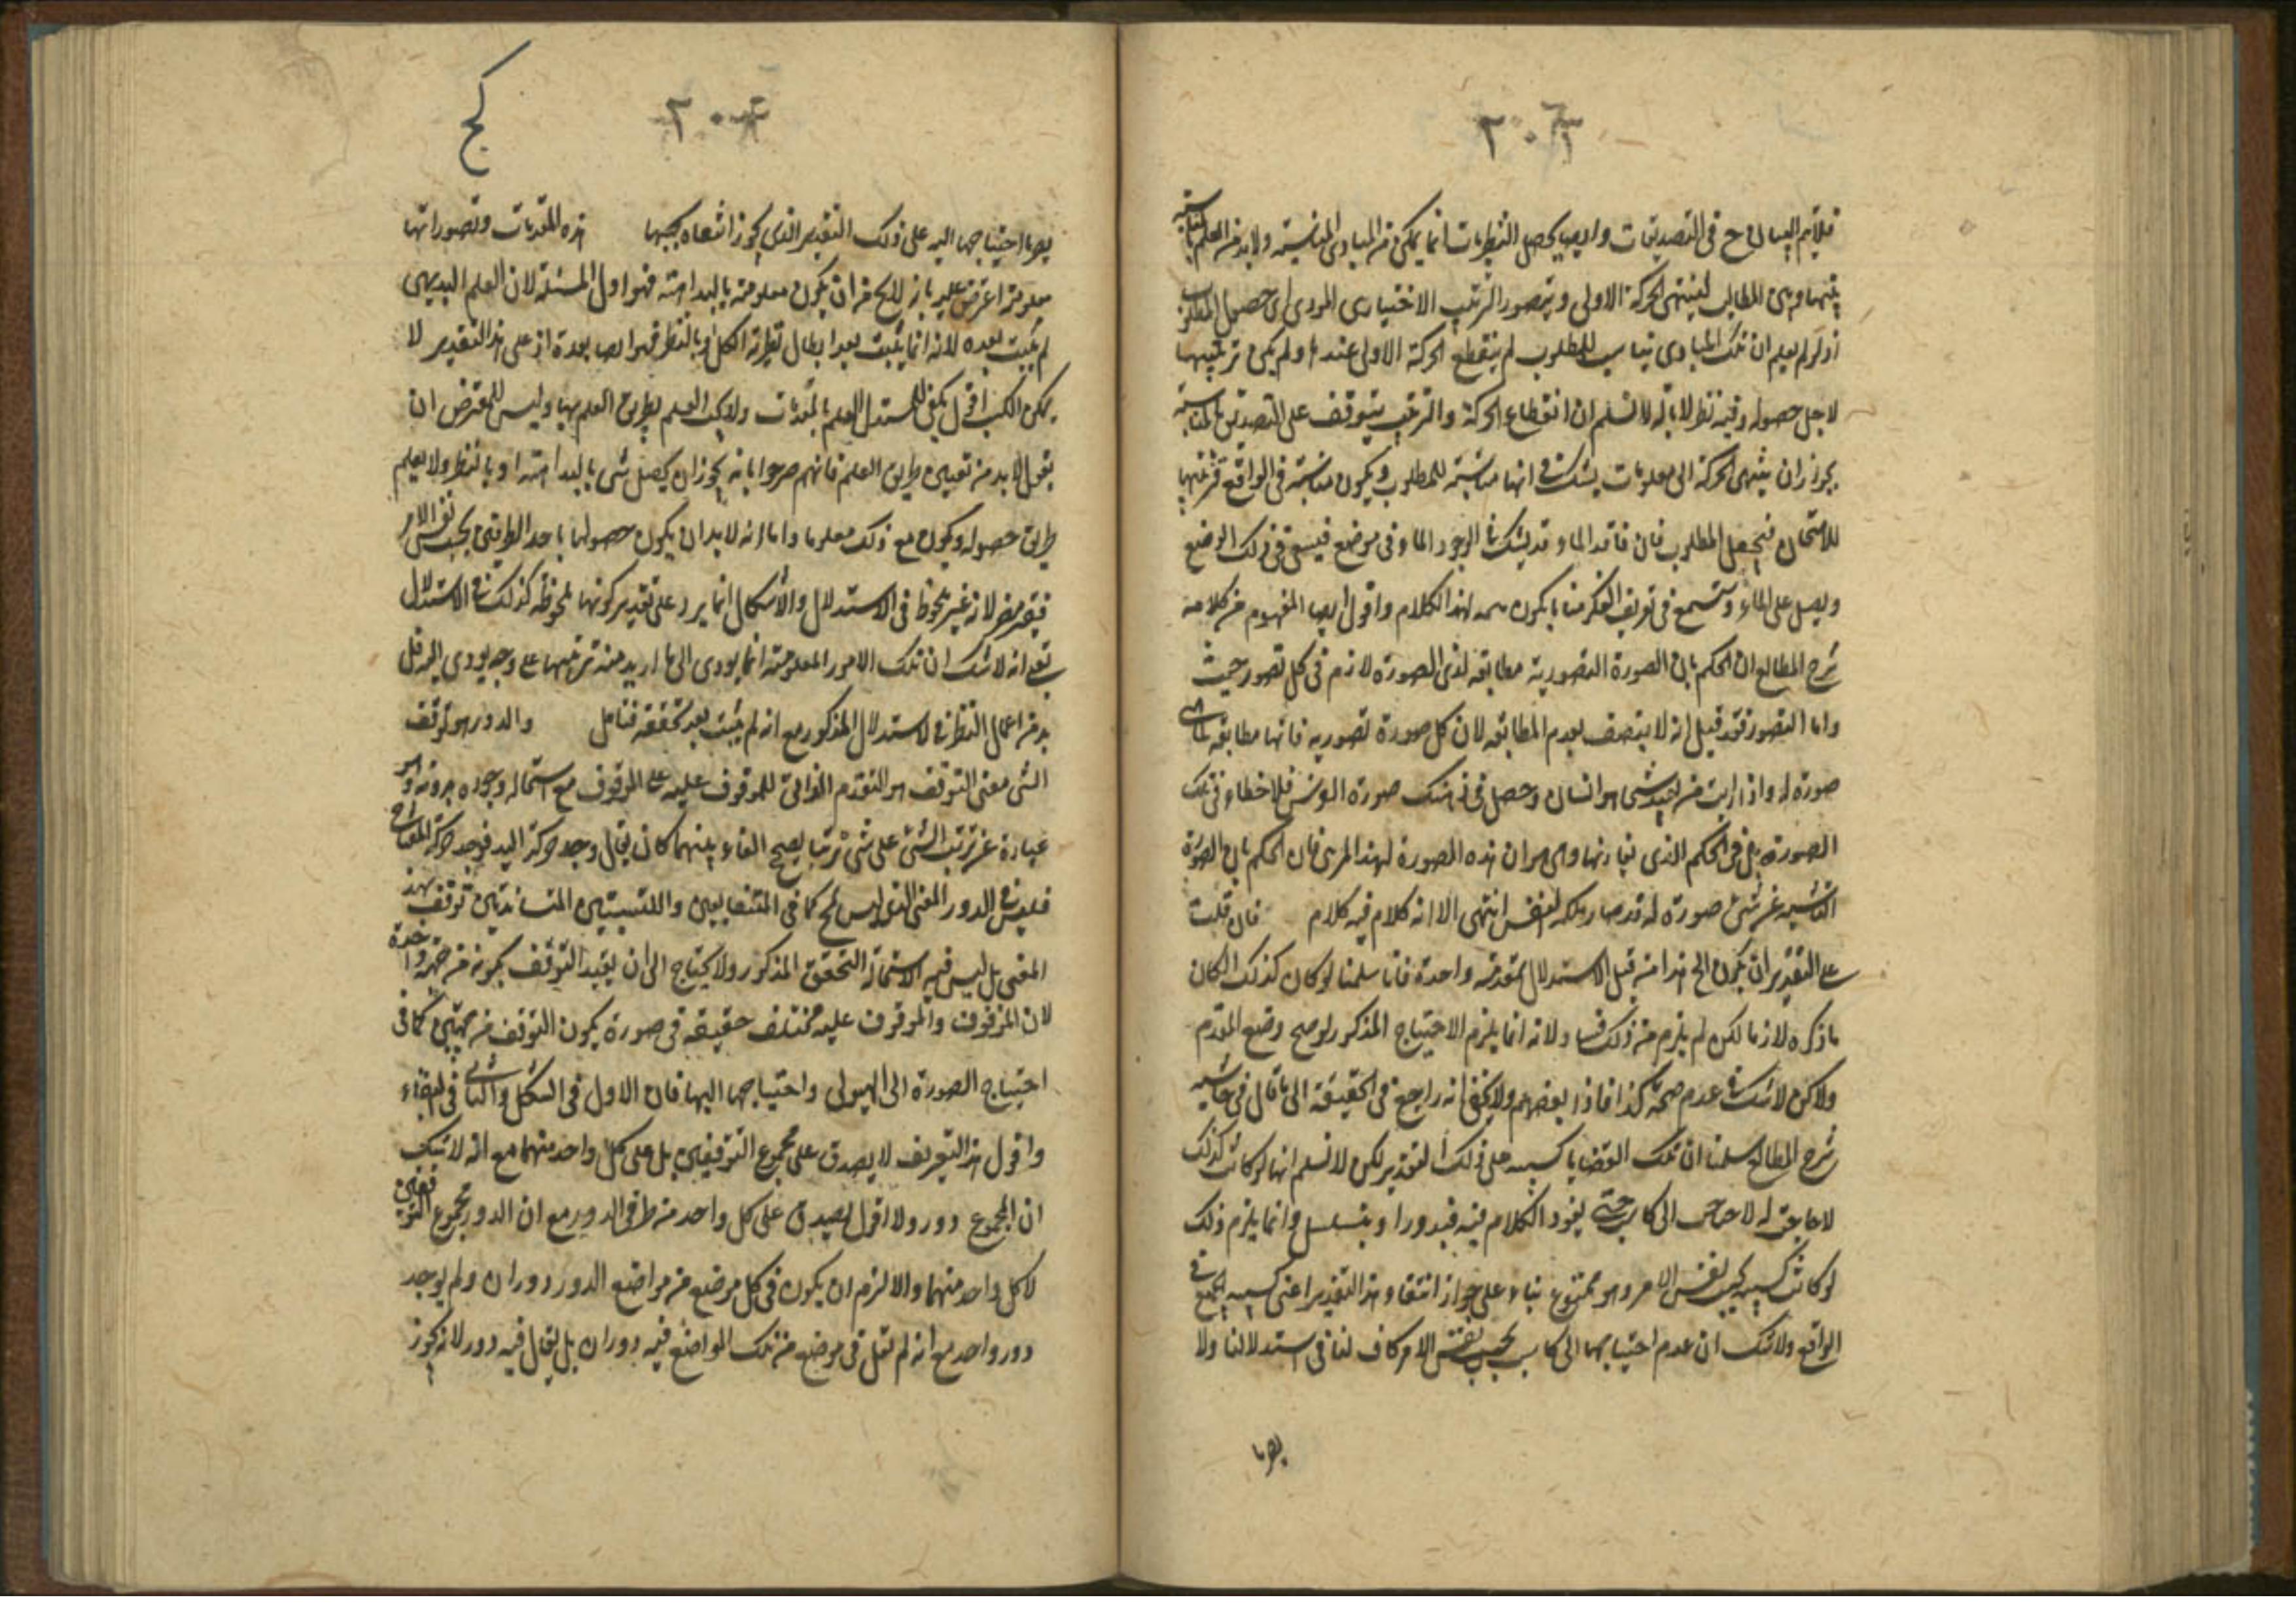 ٢٠٦
فلا يتم السالح في التصديقات وايضا تحصيل النظريات انما يمكن من المبادى المناسبة ولا بد من العلم بالمناسبة
بينها وبين المطالب لينتهى الحركة الاولى ويتصور الترتيب الاختيارى المودى الى حصول المطلوب
اذ لو لم يعلم ان تلك المبادى تناسب للمطلوب لم ينقطع الحركة الاولى عندها ولم يكن ترتيبها
لاجل حصوله وفيه نظر لانا لا نسلم ان انقطاع الحركة والترتيب يتوقف على التصديق بالمناسبة
بجواز ان ينتهى الحركة الى معلومات يشك في انها مناسبة للمطلوب ويكون مناسبة في الواقع فترتبها
للامتحان فيحصل المطلوب فان فاقد الماء قد يشك في وجود الماء في موضع فيسعى في ذلك الموضع
ويصل على الماء وستسمع في تعريف الفكر منا ما يكون لهذا الكلام واقول ايضا المفهوم من كلامه
شرح المطالع ان الحكم بان الصورة التصورية مطابقة لذى الصورة لازم في كل تصور حيث
واما التصور فقد قيل انه لا يتصف بعدم المطابقة لان كل صورة تصورية فانها مطابقة لما هى
صورة له واذا رايت من بعيد شئ هو انسان وحصل في ذهنك صورة الفرس فلا خطاء في تلك
الصورة بل في الحكم الذى يقارنها وهو ان هذه الصورة لهذا المرئى فان الحكم بان الصورة
الناشية عن شئ صورة له قد صار ملكة للنفس انتهى الا انه كلام فيه كلام فان قلت
على التقدير ان يكون الخ هذا منه قبل الاستدلال بمقدمة واحدة فانا سلمنا لو كان كذلك لكان
ما ذكره لازما لكن لم يلزم من ذلك فساد لانه انما يلزم الاحتياج المذكور لو صح وضع المقدم
ولا كن لا شك في عدم صحته كذا افاد بعضهم ولا يخفى انه راجع في الحقيقة الى ما قال في حاشية
شرح المطالع سلمنا ان تلك القضايا كسبية على ذلك التقدير لكن لا نسلم انها لو كانت كذلك
الى كاسب حتى يعود الكلام فيه فيدور او يتسلسل وانما يلزم ذلك
لو كانت كسبية بحسب نفس الامر وهو ممنوع بناء على جواز انتفاء هذا التقدير اعنى كسبية الجميع في
الواقع ولا شك ان عدم احتياجها الى كاسب بحسب نفس الامر كاف لنا في استدلالنا ولا
يضرنا
كج
يضرنا احتياجها اليه على ذلك التقدير الذى يجوز انتفاه هذه المقدمات وتصوراتها
معلومة اعترض عليه بانه لا يخ من ان يكون معلومة بالبداهة فهو اول المسئلة لان العلم البديهى
لم يثبت بعده لانه انما يثبت بعد ابطال نظرية الكل او بالنظر فهو ايضا بعده اذ على هذا التقدير لا
يمكن الكسب اقول يكفى للمستدل العلم بالمقدمات ولا يجب العلم بطريق العلم بها وليس للمعترض ان
يقول لا بد من تعيين طريق العلم فانهم صرحوا بانه يجوز ان يحصل شئ بالبداهة او بالنظر ولا يعلم
طريق حصوله ويكون مع ذلك معلوما واما انه لا بد ان يكون حصولها باحد الطريقين بحسب نفس الامر
فغير مضر لانه غير ملحوظ في الاستدلال والاشكال انما يرد على تقدير كونها ملحوظة كذلك في الاستدلال
انه لا شك ان تلك الامور المعلومة انما يودى الى ما اريد منه ترتيبها على وجه يودى اليه
بد من اعمال النظر في الاستدلال المذكور مع انه لم يثبت بعد تحققه فتامل والدور هو توقف
الشئ معنى التوقف هو التقدم الذاتى للموقوف عليه على الموقوف مع استحالة وجوده بدونه وهو
عبارة عن ترتب الشئ على شئ ترتبا يصح الفاء بينهما كان يقال وجد حركة اليد فوجد حركة المفتاح
فليس في الدور المعنى الذى ليس بمح كما في المتضايفين واللبنتين المتساندتين توقف بهذا
المعنى بل ليس فيه الا استحالة التحقق المذكور ولا يحتاج الى ان يقيد التوقف بكونه من جهة واحدة
لان الموقوف والموقوف عليه مختلف حقيقة في صورة يكون التوقف من جهتين كما في
احتياج الصورة الى الهيولى واحتياجها اليها فان الاول في التشكل والثانى في البقاء
واقول هذا التعريف لا يصدق على مجموع التوقيفين بل على كل واحد منهما مع انه لا شك
ان المجموع دور ولا اقول يصدق على كل واحد من طرفى الدور مع ان الدور مجموع التوقفين
لا كل واحد منهما والا لزم ان يكون في كل موضع من مواضع الدور دوران ولم يوجد
دور واحد مع انه لم نقل في موضع من تلك المواضع فيه دوران بل يقال فيه دور لانه يجوز